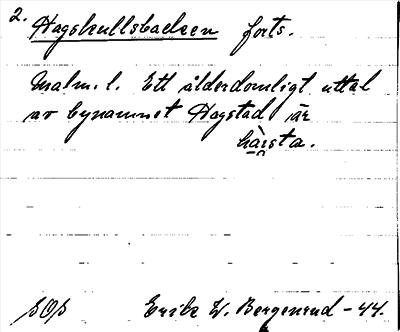 2.
Hagskullsbacken forts.
Malm. l. Ett ålderdomligt uttal
av bynamnet Hagstad är
hàǫsta.
SOS Erik W. Bergenrud - 44.